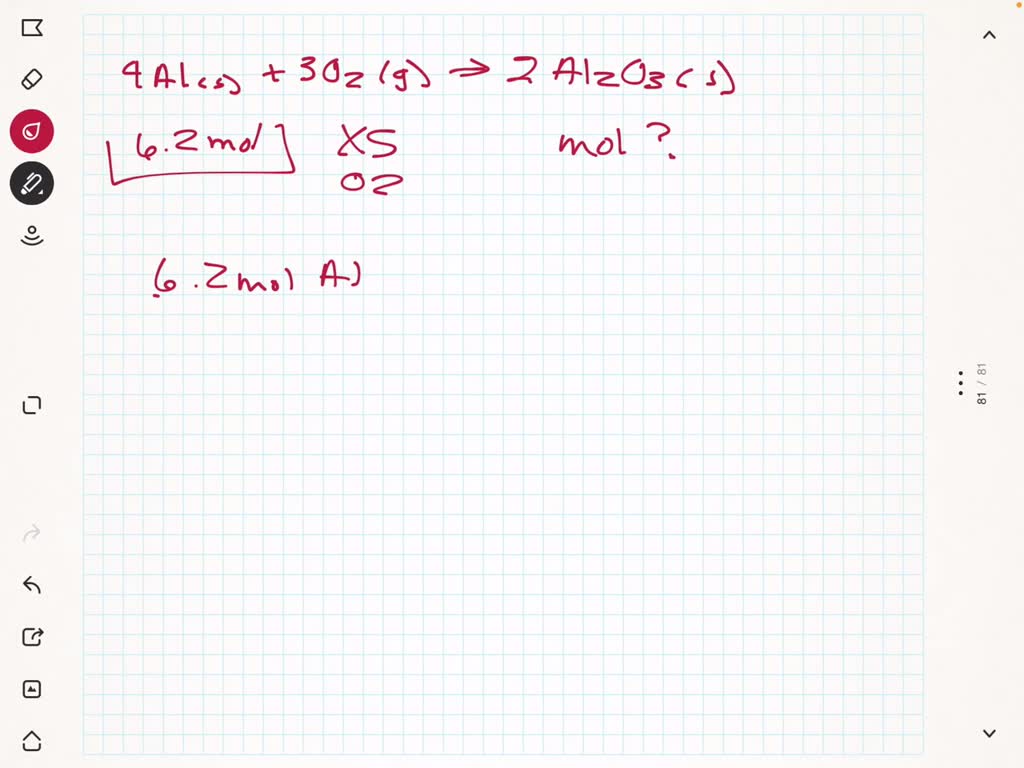 4Al(s) + 3O2(g) → 2Al2O3(s)
6.2mol XS mol ?
O2
6.2mol Al
81 / 81